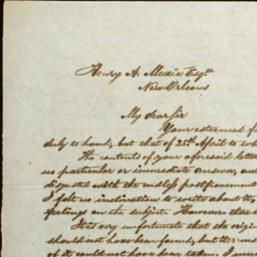 Henry A. Mexia Esqr.
New Orleans
My dear Sir
Your esteemed f
duly to hand, but that of 25th April to wh
The contents of your aforesaid letter
us particular or immediate answer, and
disgusted with the endless postponement
I felt no inclination to write about the
feelings on the subject. However there
It is very unfortunate that the origin
should not have been found, but the
of it could not have been taken. I